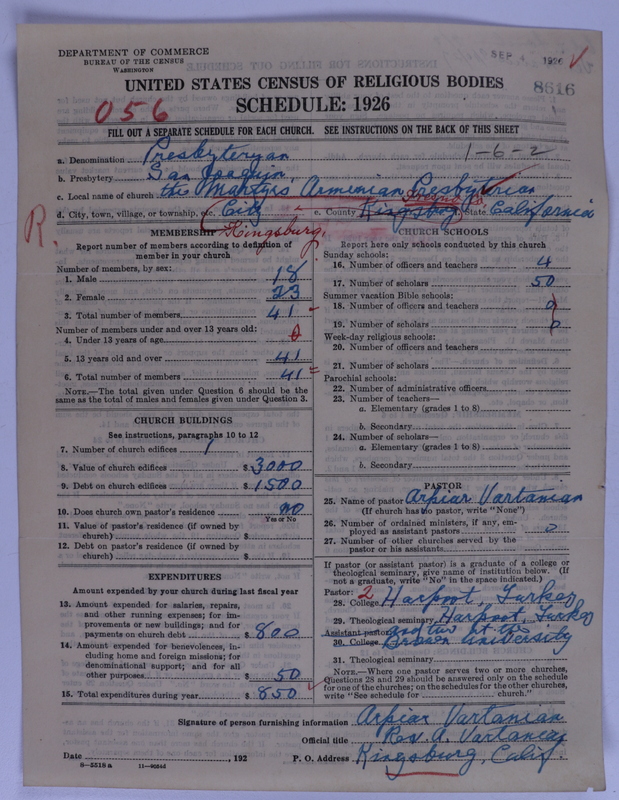 DEPARTMENT OF COMMERCE
BUREAU OF THE CENSUS
WASHINGTON
SEP 1926
8616
UNITED STATES CENSUS OF RELIGIOUS BODIES
SCHEDULE: 1926
056
FILL OUT A SEPARATE SCHEDULE FOR EACH CHURCH. SEE INSTRUCTIONS ON THE BACK OF THIS SHEET
1-6-2
a. Denomination Presbyteryan
b. Presbytery San Joaquin,
c. Local name of church the Martyrs Armenian Presbytrian
Fresno
d. City, town, village, or township, etc. City e. County Kingsburg State California
R.
Kingsburg,
MEMBERSHIP
Report number of members according to definition of
member in your church
Number of members, by sex:
1. Male 18
2. Female 23
3. Total number of members 41
Number of members under and over 13 years old:
4. Under 13 years of age 0
5. 13 years old and over 41
6. Total number of members 41
NOTE.—The total given under Question 6 should be the
same as the total of males and females given under Question 3.
CHURCH BUILDINGS
See instructions, paragraphs 10 to 12
7. Number of church edifices 1
8. Value of church edifices $ 3000
9. Debt on church edifices $ 1500
10. Does church own pastor's residence no
Yes or No
11. Value of pastor's residence (if owned by
church) $
12. Debt on pastor's residence (if owned by
church) $
EXPENDITURES
Amount expended by your church during last fiscal year
13. Amount expended for salaries, repairs,
and other running expenses; for im-
provements or new buildings; and for
payments on church debt $ 800
14. Amount expended for benevolences, in-
cluding home and foreign missions; for
denominational support; and for all
other purposes $ 50
15. Total expenditures during year $ 850
CHURCH SCHOOLS
Report here only schools conducted by this church
Sunday schools:
16. Number of officers and teachers 4
17. Number of scholars 50
Summer vacation Bible schools:
18. Number of officers and teachers 0
19. Number of scholars 0
Week-day religious schools:
20. Number of officers and teachers
21. Number of scholars
Parochial schools:
22. Number of administrative officers
23. Number of teachers—
a. Elementary (grades 1 to 8)
b. Secondary
24. Number of scholars—
a. Elementary (grades 1 to 8)
b. Secondary
PASTOR
25. Name of pastor Arpiar Vartanian
(If church has no pastor, write "None")
26. Number of ordained ministers, if any, em-
ployed as assistant pastors 0
27. Number of other churches served by the
pastor or his assistants
If pastor (or assistant pastor) is a graduate of a college or
theological seminary, give name of institution below. (If
not a graduate, write "No" in the space indicated.)
Pastor: 2
28. College Harpoot, Turkey
29. Theological seminary Harpoot, Turkey
Assistant pastor: at the
30. College Brown University
31. Theological seminary
NOTE.—Where one pastor serves two or more churches,
Questions 28 and 29 should be answered only on the schedule
for one of the churches; on the schedules for the other churches,
write "See schedule for church."
Signature of person furnishing information Arpiar Vartanian
Official title Rev. A. Vartanian
Date , 192 P. O. Address Kingsburg, Calif.
8—5518 a